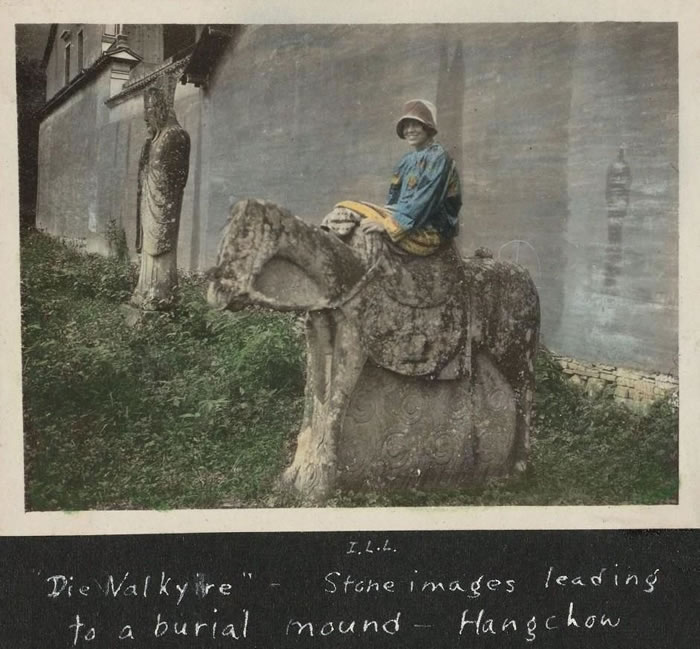 I.L.L.
"Die Walkyre" - Stone images leading
to a burial mound - Hangchow